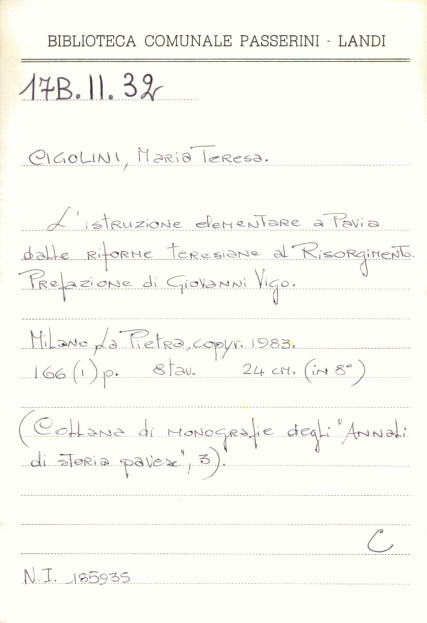 BIBLIOTECA COMUNALE PASSERINI - LANDI
17B.II.32
CIGOLINI, Maria Teresa.
L'istruzione elementare a Pavia
dalle riforme teresiane al Risorgimento.
Prefazione di Giovanni Vigo.
Milano, La Pietra, copyr. 1983.
166 (1) p. 8 tav. 24 cm. (in 8°)
(Collana di monografie degli "Annali
di storia pavese", 3).
C
N.I. 185935